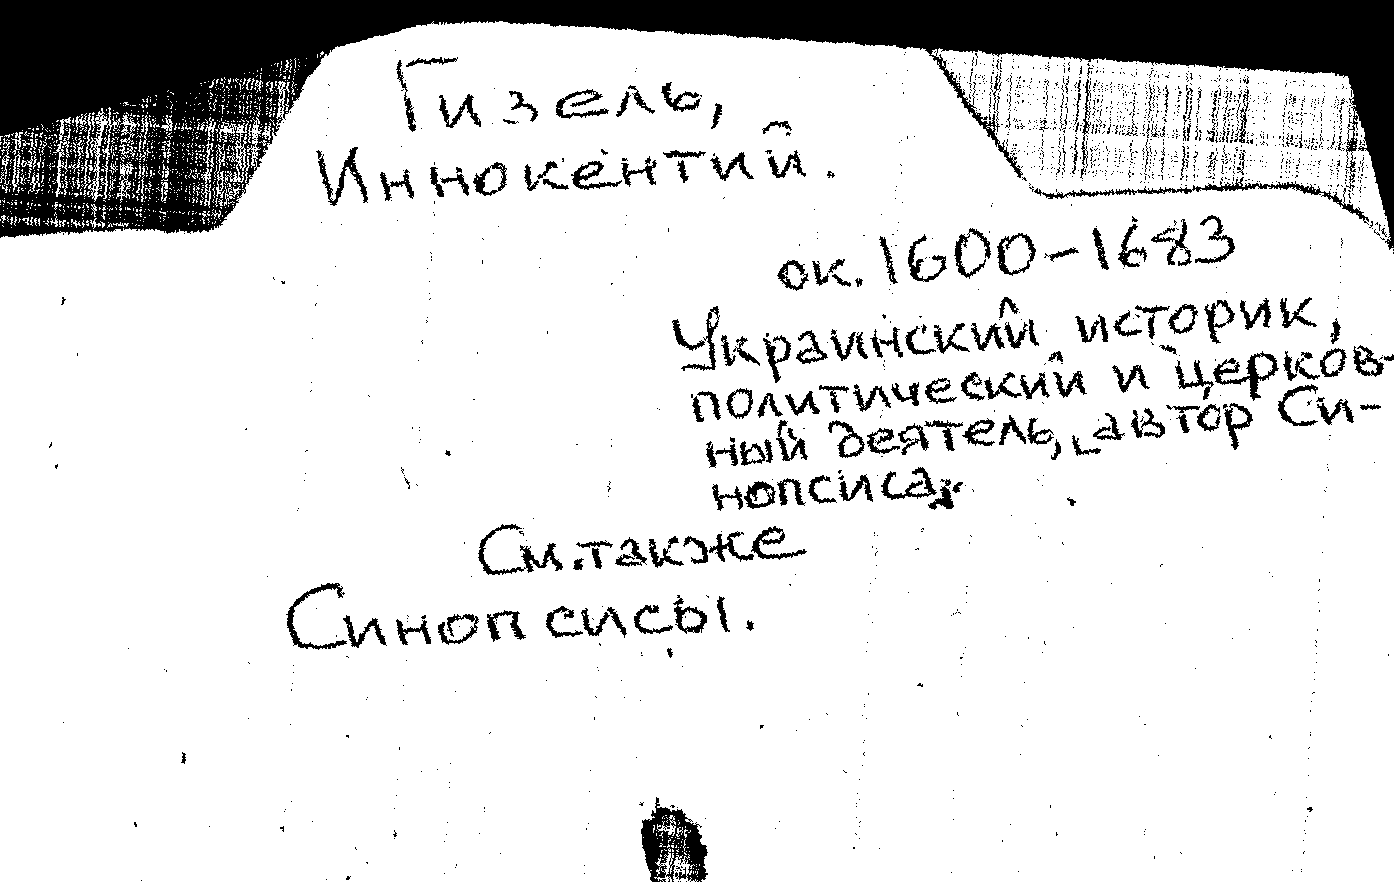 Гизель,
Иннокентий.
ок. 1600-1683
Украинский историк,
политический и церков-
ный деятель, автор Си-
нопсиса.
См. также
Синопсисы.